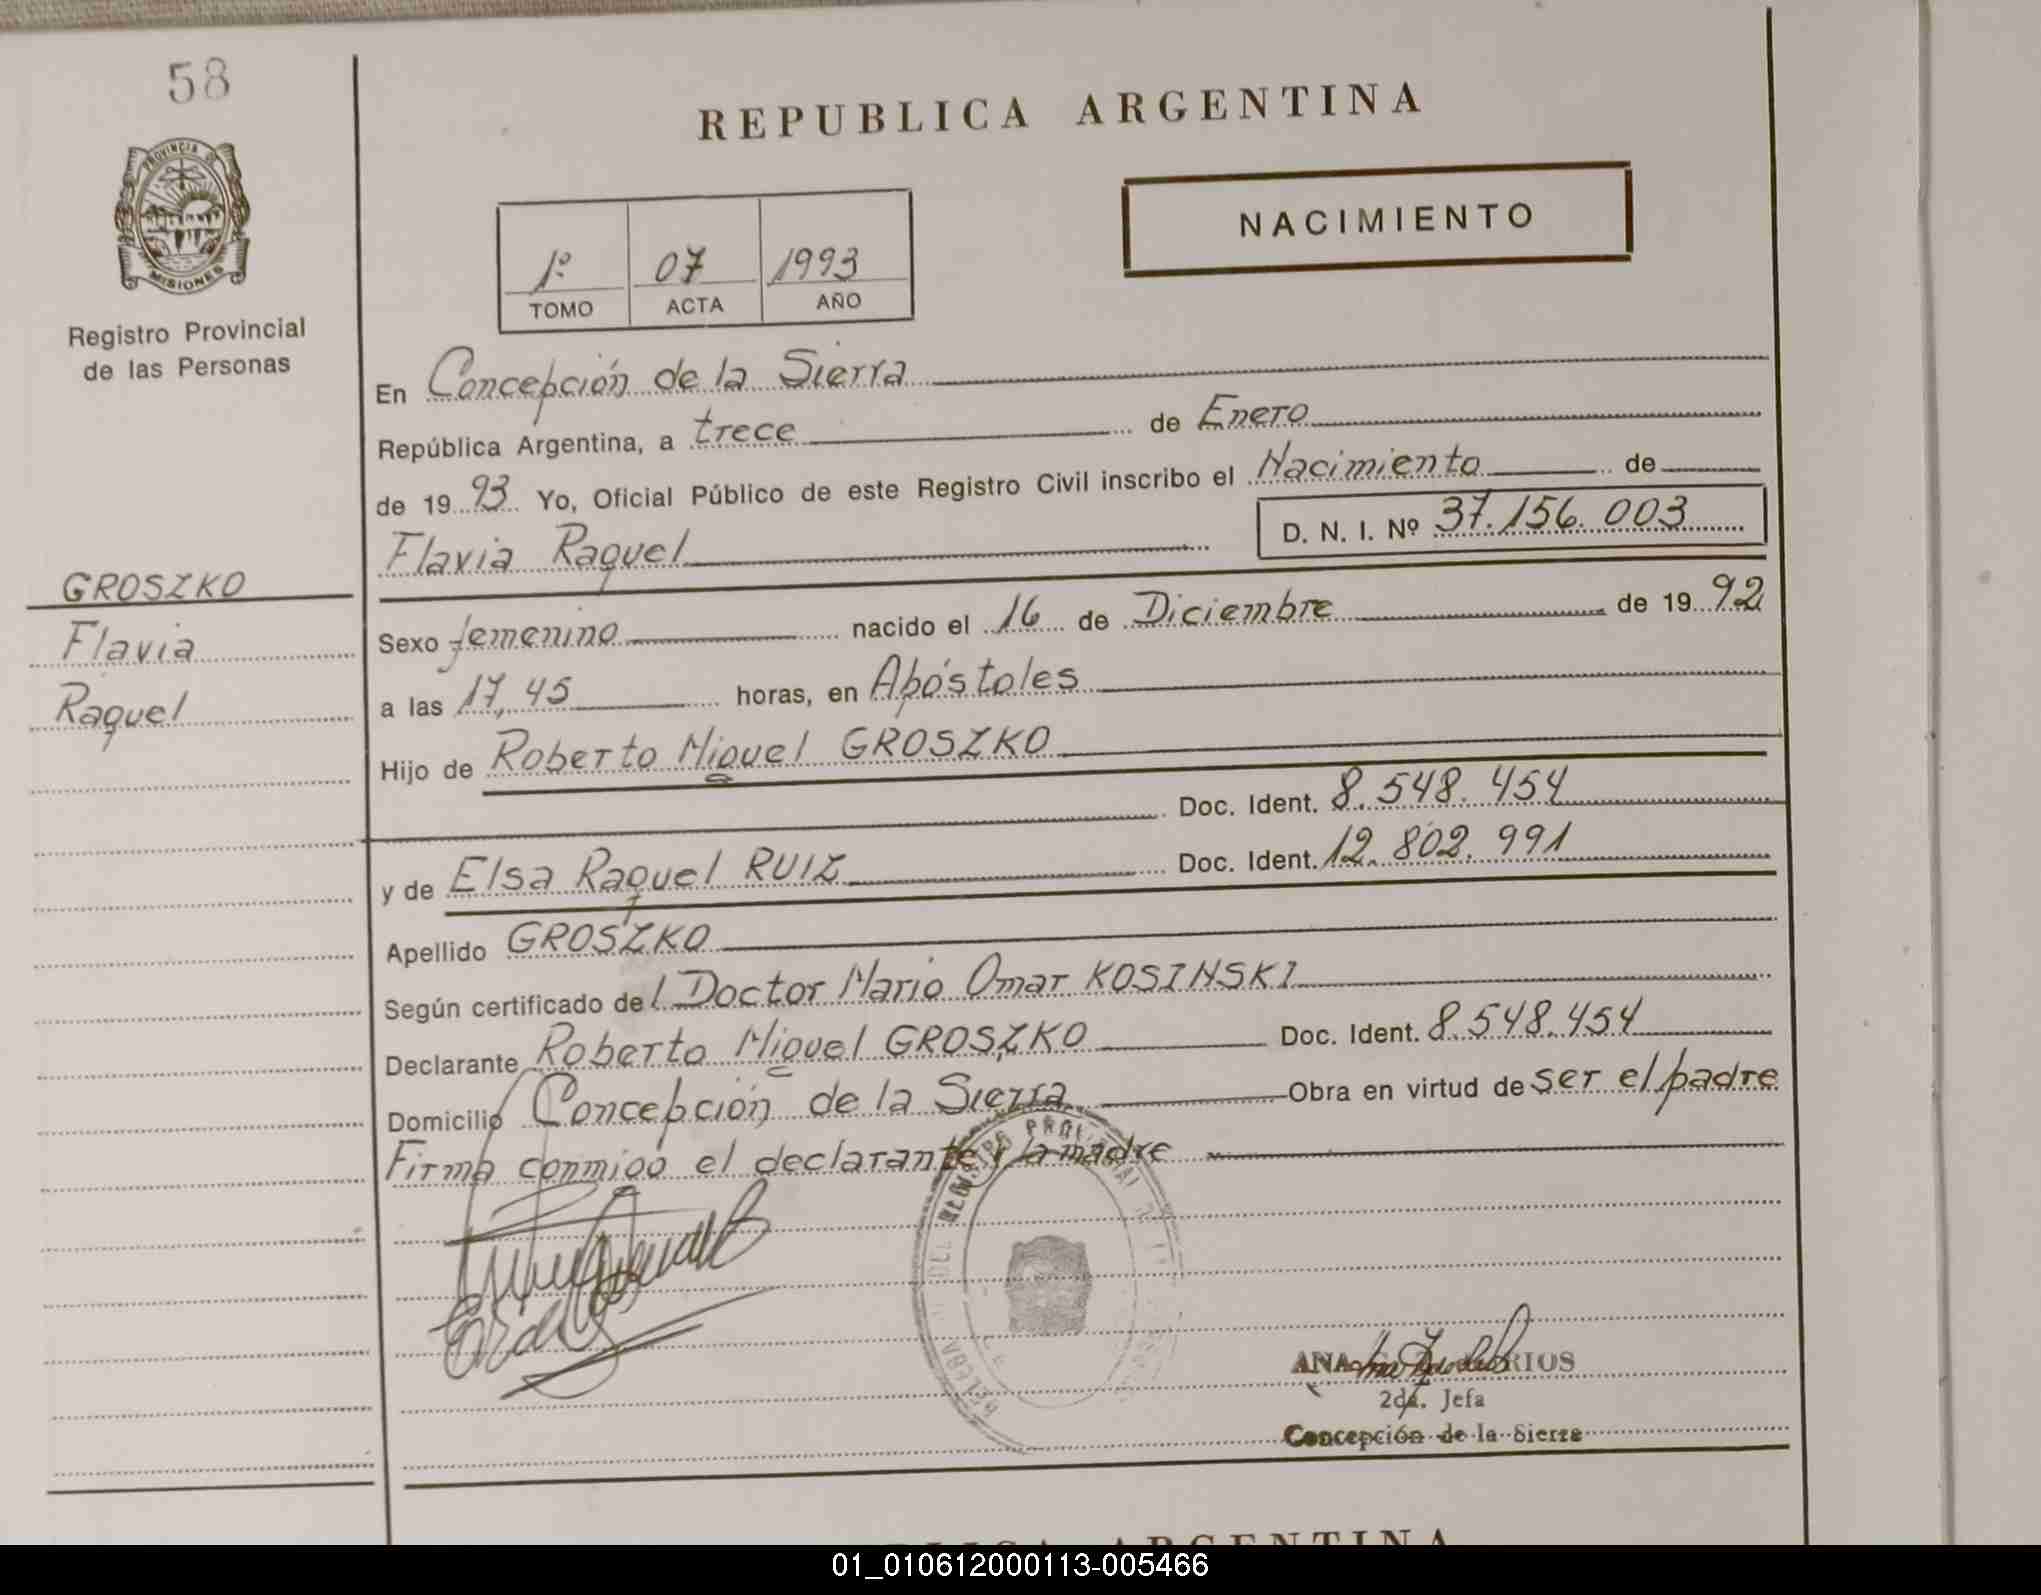 58
REPUBLICA ARGENTINA
PROVINCIA DE
MISIONES
Registro Provincial
de las Personas
NACIMIENTO
1º 07 1993
TOMO ACTA AÑO
En Concepción de la Sierra
República Argentina, a trece de Enero
de 1993 Yo, Oficial Público de este Registro Civil inscribo el Nacimiento de
Flavia Raquel D. N. I. Nº 37.156.003
GROSZKO
Flavia
Raquel
Sexo femenino nacido el 16 de Diciembre de 1992
a las 17,45 horas, en Apóstoles
Hijo de Roberto Miguel GROSZKO
Doc. Ident. 8.548.454
y de Elsa Raquel RUIZ Doc. Ident. 12.802.991
Apellido GROSZKO
Según certificado del Doctor Mario Omar KOSINSKI
Declarante Roberto Miguel GROSZKO Doc. Ident. 8.548.454
Domicilio Concepción de la Sierra Obra en virtud de ser el padre
Firma conmigo el declarante y la madre
ANA RIOS
2da. Jefa
Concepción de la Sierra
ARGENTINA
01_010612000113-005466